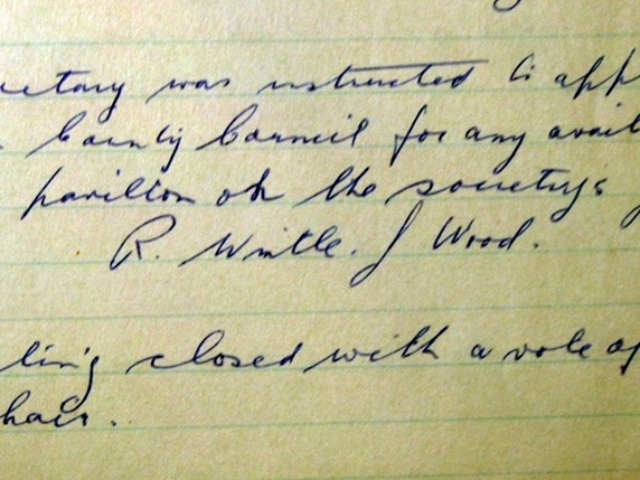 cretary was instructed to app
County Council for any avail
pavilion on the society's
R. Wintle. J Wood.
ting closed with a vote of
hair.